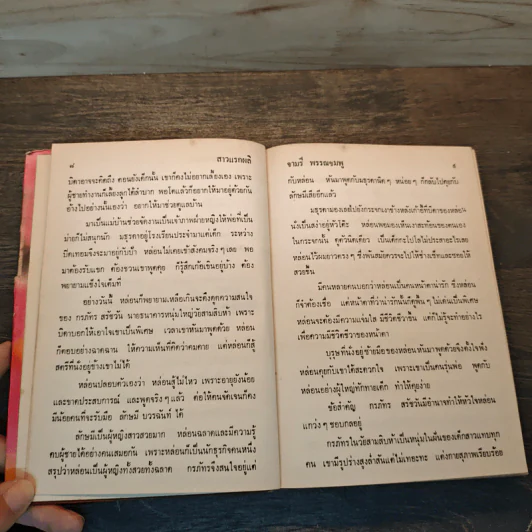 ๘ สาวแรกผลิ
บิดาอาจจะคิดถึง ตอนยังเด็กนั้น เขาก็คงไม่อยากเลี้ยงเอง เพราะ
ผู้ชายทำงานก็เลี้ยงลูกได้ลำบาก พอโตแล้วก็อยากให้มาอยู่ด้วยกัน
อ้างไปอย่างนั้นเองว่า อยากให้มาช่วยดูแลบ้าน
มาเป็นแม่บ้านช่วยจัดงานเป็นเจ้าภาพฝ่ายหญิงให้พ่อที่เป็น
ม่ายก็ไม่สนุกนัก มธุรดาอยู่โรงเรียนประจำมาแต่เด็ก ระหว่าง
ปิดเทอมจึงจะมาอยู่กับป้า หล่อนไม่เคยเข้าสังคมจริง ๆ เลย พอ
มาต้องรับแขก ต้องชวนเขาพูดคุย ก็รู้สึกเก้อเขินอยู่บ้าง ต้อง
พยายามแข็งใจเต็มที่
อย่างวันนี้ หล่อนก็พยายามเหลือเกินจะดึงดูดความสนใจ
ของ กรภัทร สรชัวน นายธนาคารหนุ่มใหญ่วัยสามสิบห้า เพราะ
บิดาบอกให้เอาใจเขาเป็นพิเศษ เวลาเขาหันมาพูดด้วย หล่อน
ก็ตอบอย่างฉาดฉาน ให้ความเห็นที่คิดว่าคมคาย แต่หล่อนก็สู้
สตรีที่นั่งอยู่ข้างเขาไม่ได้
หล่อนปลอบตัวเองว่า หล่อนสู้ไม่ไหว เพราะอายุยังน้อย
และขาดประสบการณ์ และพูดจริง ๆ แล้ว ต่อให้คนจัดเจนก็คง
มีน้อยคนที่จะรับมือ ลักษมี บวรฉันท์ ได้
ลักษมีเป็นผู้หญิงสาวสวยมาก หล่อนฉลาดและมีความรู้
คบผู้ชายได้อย่างคนเสมอกัน เพราะหล่อนก็เป็นนักธุรกิจคนหนึ่ง
สรุปว่าหล่อนเป็นผู้หญิงทั้งสวยทั้งฉลาด กรภัทรจึงสนใจอยู่แต่
จามรี พรรณชมพู ๙
กับหล่อน หันมาพูดกับมธุรดานิด ๆ หน่อย ๆ ก็กลับไปคุยกับ
ลักษมีเสียอีกแล้ว
มธุรดามองเลยไปยังกระจกเงาข้างหลังเก้าอี้ที่บิดาของหล่อน
นั่งเป็นสง่าอยู่หัวโต๊ะ หล่อนพอมองเห็นเงาสะท้อนของตนเอง
ในกระจกนั้น ดูตัวนิดเดียว เป็นเด็กกะโปโลไม่ประสาอะไรเลย
หล่อนไว้ผมยาวตรง ๆ ซึ่งพ้นสมัคครจะไปให้ช่างเซ็ทและซอยให้
สวยขึ้น
มีคนหลายคนบอกว่าหล่อนเป็นคนหน้าตาน่ารัก ซึ่งหล่อน
ก็จำต้องเชื่อ แต่หน้าตาที่ว่าน่ารักนั้นก็ดูพื้น ๆ ไม่เด่นเป็นพิเศษ
หล่อนจะต้องมีความแจ่มใส มีชีวิตชีวาขึ้น แต่ก็ไม่รู้จะทำอย่างไร
เพื่อความมีชีวิตชีวาของหน้าตา
บุรุษที่นั่งอยู่ซ้ายมือของหล่อนหันมาพูดด้วยจึงดึงใจฟัง
หล่อนคุยกับเขาได้สะดวกใจ เพราะเขาเป็นคนรุ่นพ่อ พูดกับ
หล่อนอย่างผู้ใหญ่ทักทายเด็ก ทำให้คุยง่าย
ข้อสำคัญ กรภัทร สรชัวนมีอำนาจทำให้หัวใจหล่อน
แกว่ง ๆ ชอบกลอยู่
กรภัทรในวัยสามสิบห้าเป็นหนุ่มในฝันของเด็กสาวแทบทุก
คน เขามีรูปร่างสูงล่ำสันแต่ไม่เทอะทะ แต่งกายสุภาพเรียบร้อย